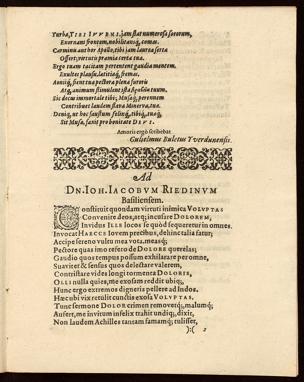 Turba, TIBI IVVENI, jam stat numerosa sororum,
Exornans frontem, nobilitansq́; comas.
Carmina aut hær Apollo, tibi jam laurea serta
Offert, virtutis præmia certa tua.
Ergo tuam tacitam pertentent gaudia mentem.
Exultes plausu, lætitiaq́; fremas.
Annuiq́; sient tua pectora plena furoris
Atq; animum stimulent ista Apollinis tuum.
Sic decus immortale tibi, Musaq́;
Contribuet laudem flava Minerva, tua.
Deniq; ut hoc faustum felixq́; tibiq́; tuaq́;
Sit Musa, faxit pro bonitate DEVS.
Amoris ergò scribebat
Guilielmus Buletus Yverdunensis.
Ad
DN. IOH. IACOBVM RIEDINVM
Basiliensem.
Constituit quondam virtuti inimica VOLVPTAS
Convenire deos, atq; incusare DOLOREM,
Invidus ILLE locos se quòd sequeretur in omnes.
Invocat HAECCE Iovem precibus, dehinc talia fatur;
Accipe sereno vultu mea vota, measq́;
Pectore quas imo refero de DOLORE querelas;
Gaudio quos tempus possum exhilarare per omne,
Suaviter & sensus quos delectare valerem,
Contristare vides longi tormenta DOLORIS,
OLLI nulla quies, me exosam reddit ubiq;.
Hunc ergo extremos digneris pellere ad Indos.
Hæc ubi vix retulit cunctis exosa VOLVPTAS.
Tunc sermone DOLOR crimen removetq́; malumq́;
Aufert, me invitum infelix trahit undiq;, dixit,
Non laudem Achilles tantam famamq́; tulisset,
):( 2